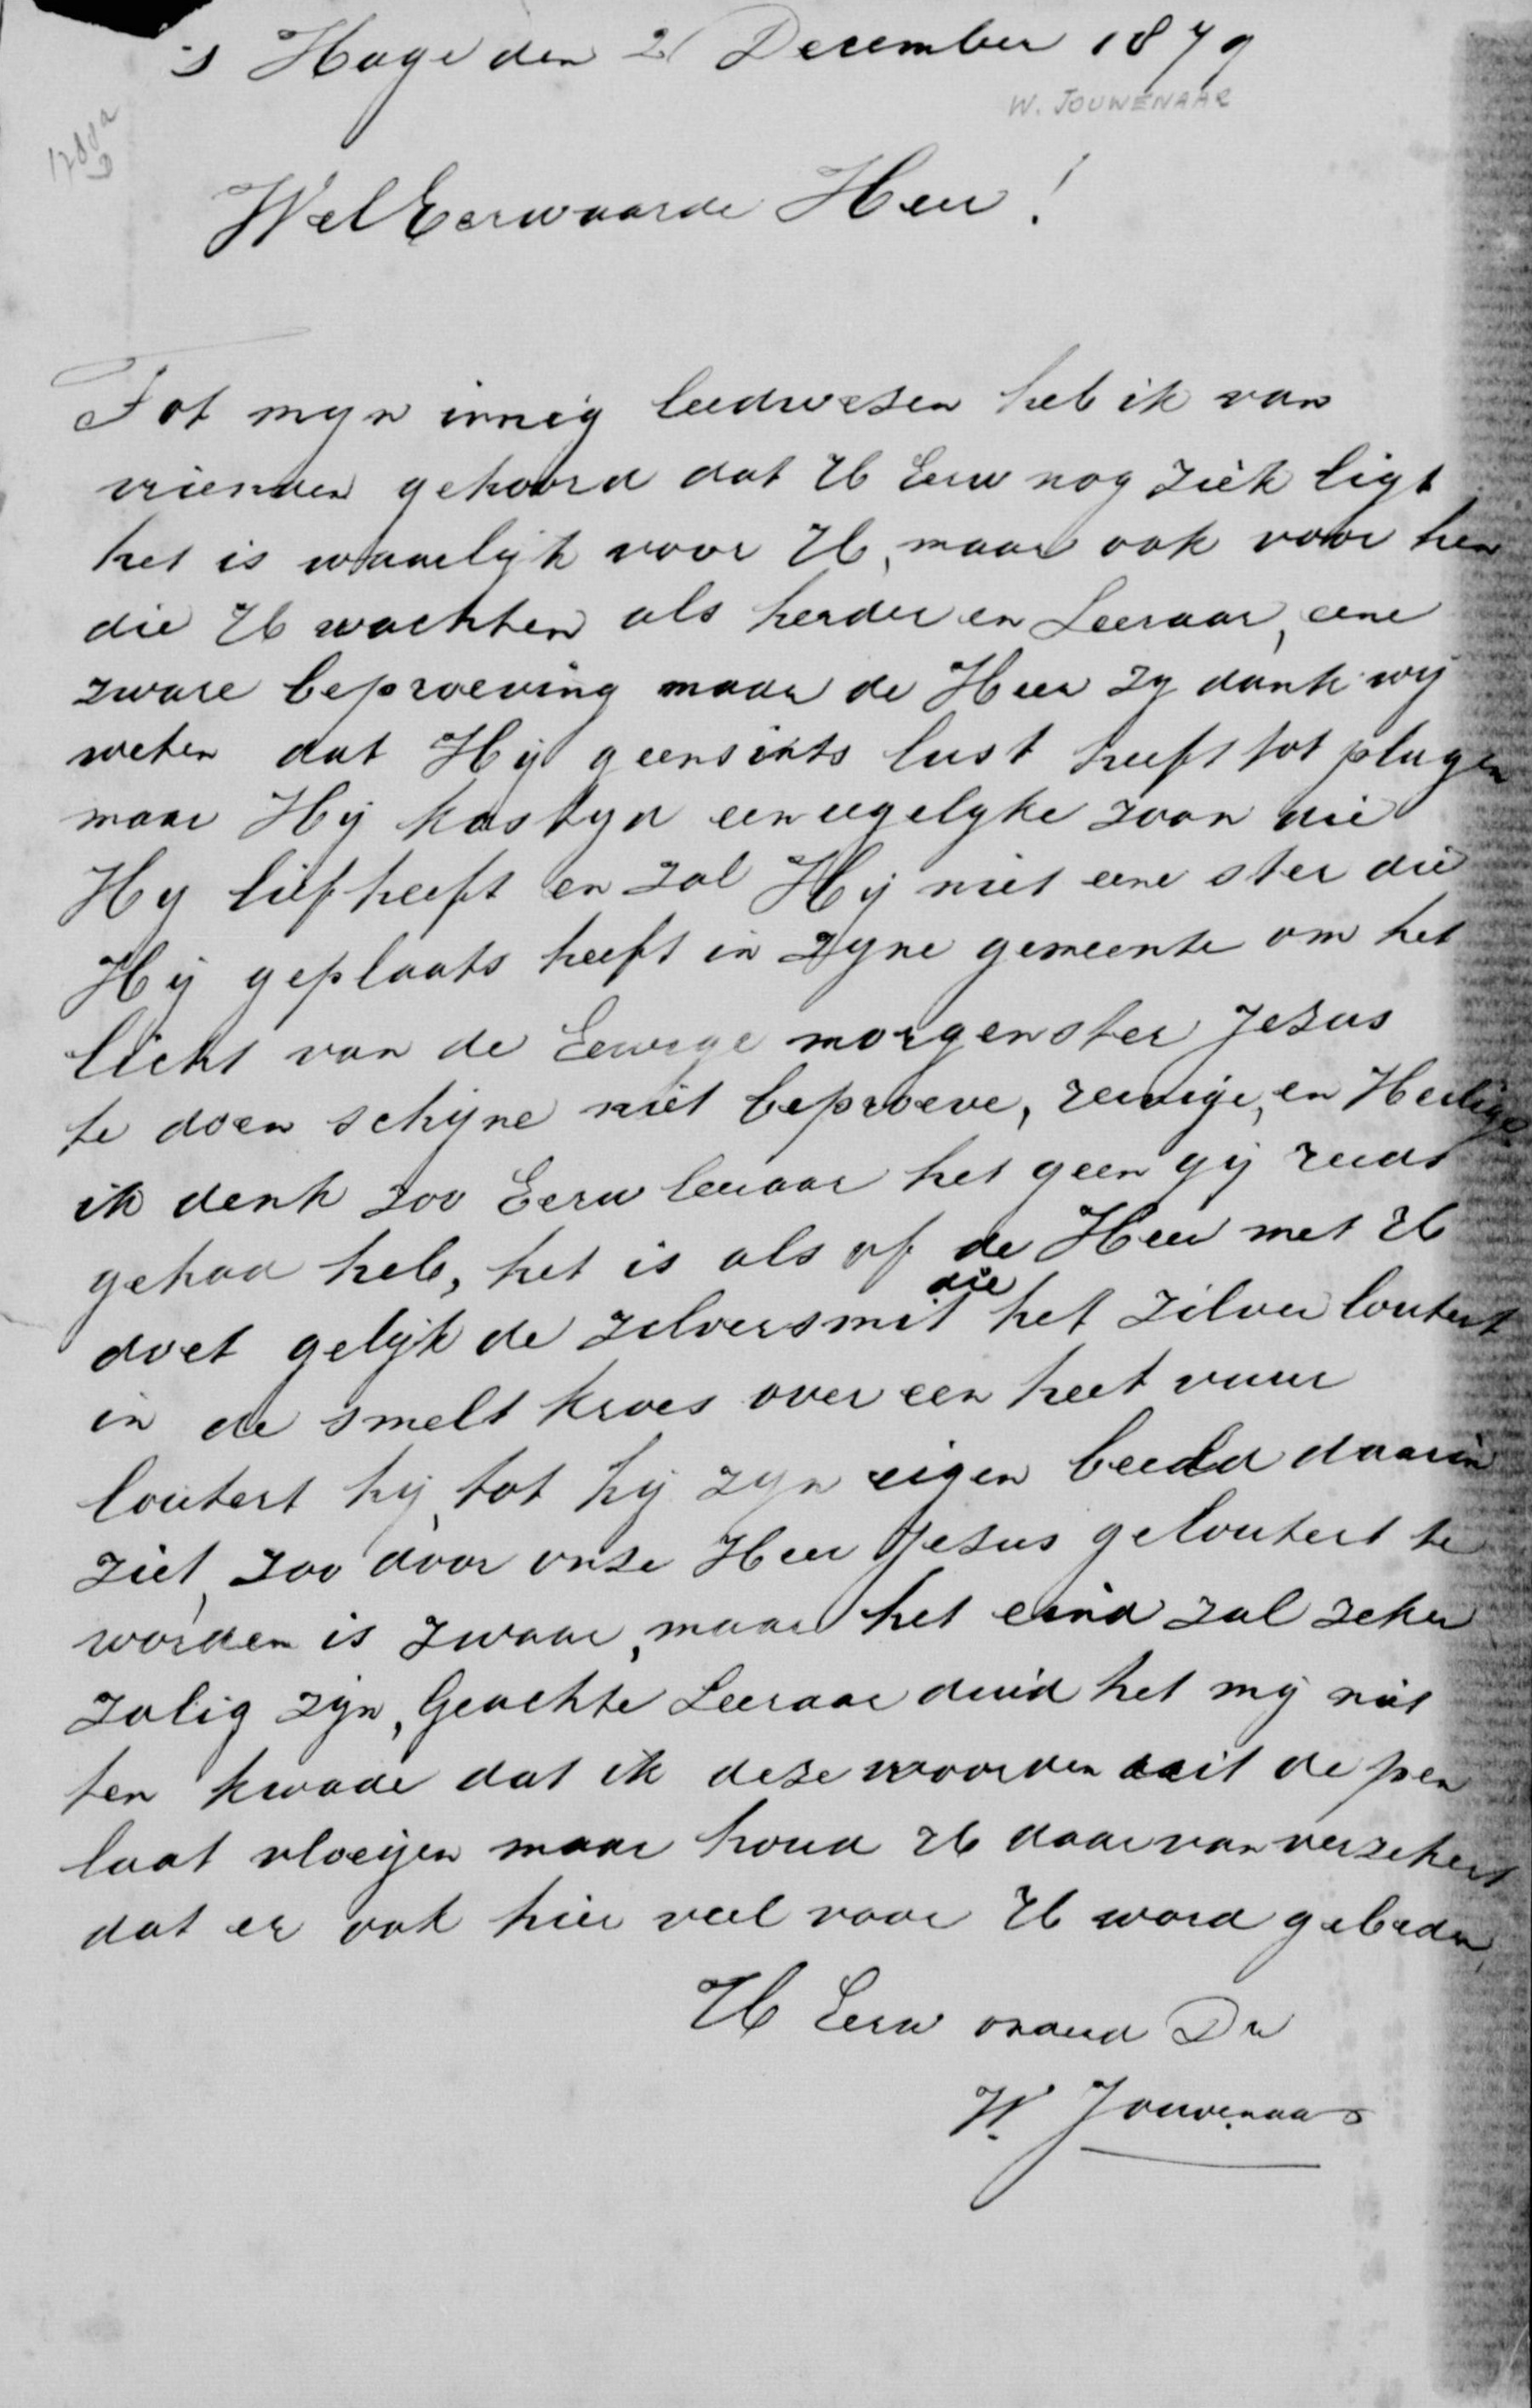 's Hage den 2 December 1879
W. JOUWENAAR
Wel Eerwaarde Heer!
Tot myn innig leedwesen heb ik van
vrienden gehoord dat U Eerw nog ziek ligt
het is waarlijk voor U, maar ook voor hen
die U wachten als herder en Leeraar, eene
zware beproeving maar de Heer zy dank wij
weten dat Hij geensints lust heeft tot plagen
maar Hij kastyd een iegelyke zoon die
Hy lief heeft en zal Hij niet eene ster die
Hij geplaats heeft in zyne gemeente om het
licht van de Eewige morgenster Jesus
te doen schijne niet beproeve, reinige, en Heilige
ik denk zoo Eerw leeraar het geen gij reeds
gehad heb, het is als of de Heer met U
doet gelijk de zilversmit die het zilver loutert
in de smelt kroes over een heet vuur
loutert hij, tot hij zyn eigen beeld daarin
ziet, zoo door onze Heer Jesus geloutert te
worden is zwaar, maar het eind zal zeker
zalig zijn, Geachte Leeraar duid het mij niet
ten kwade dat ik deze woorden uit de pen
laat vloeijen maar houd U daar van verzekert
dat er ook hier veel voor U word gebeden,
U Eerw onderd Dr
W. Jouwenaar